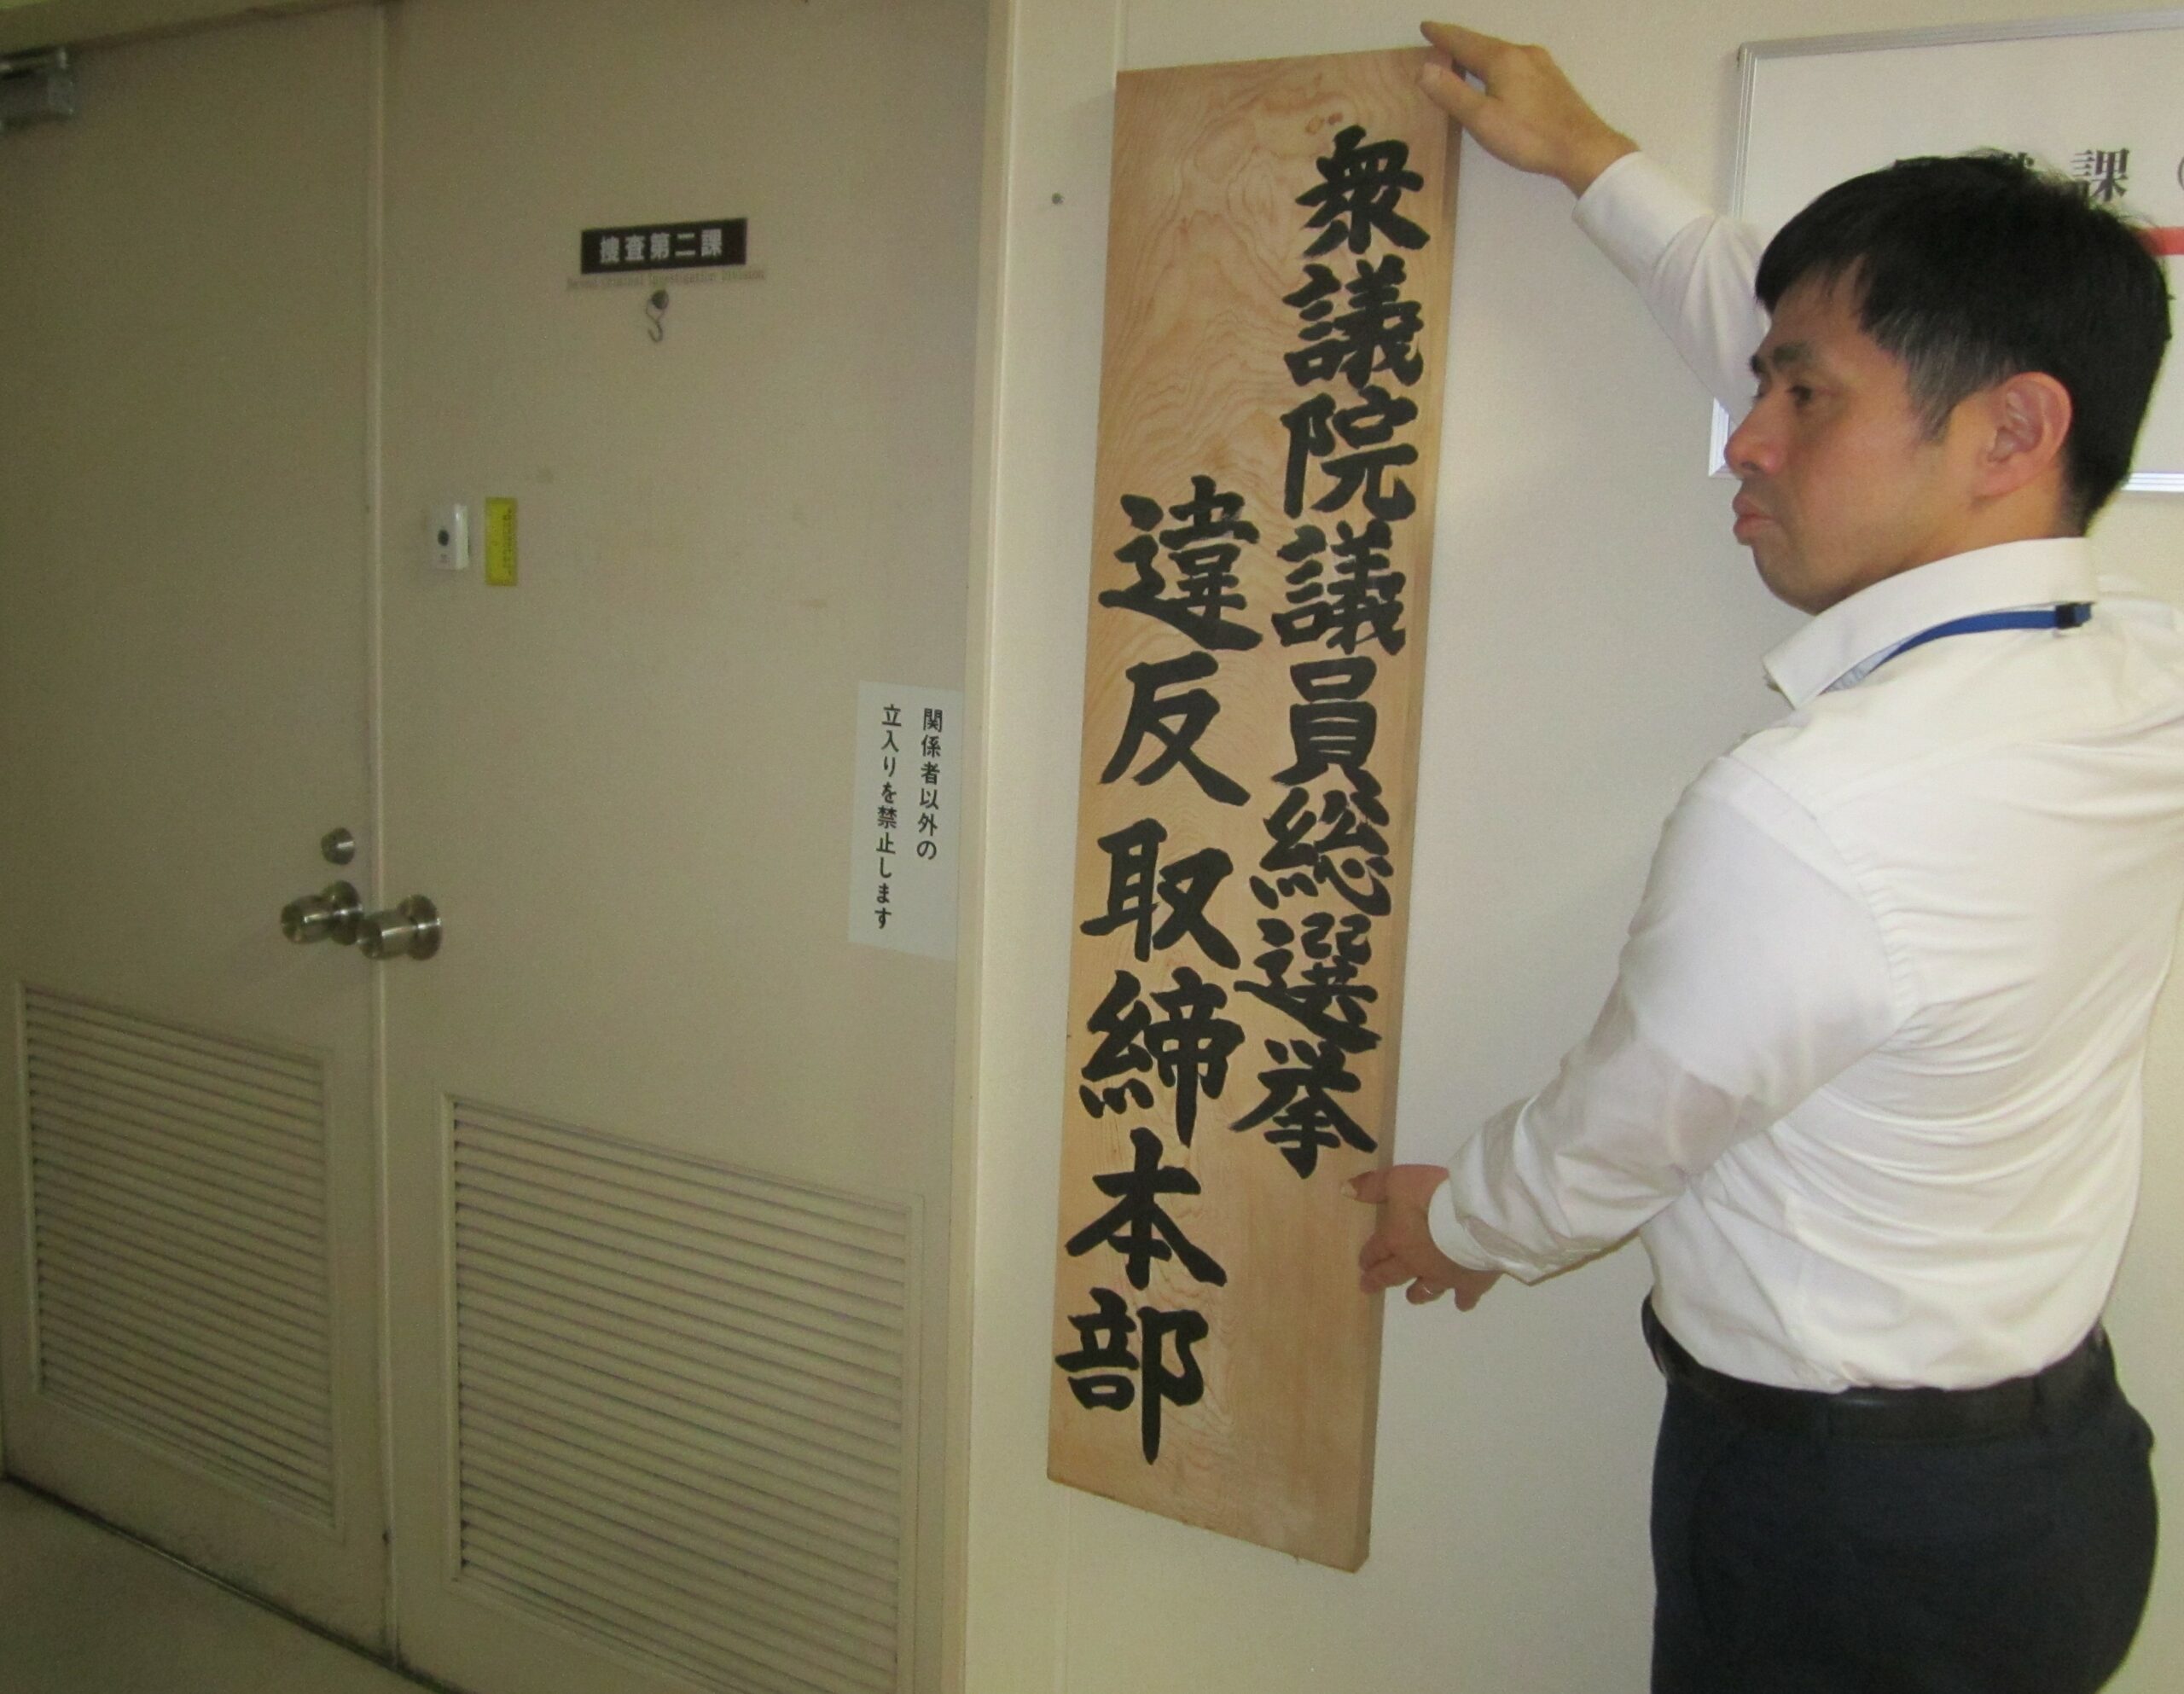 捜査第二課
Second Criminal Investigation Division
関係者以外の
立入りを禁止します
衆議院議員総選挙
違反取締本部
課